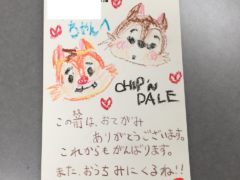 ちゃんへ
CHIP 'N
DALE
この前は、おてがみ
ありがとうございます。
これからもがんばります。
また、おうちみにくるね!!